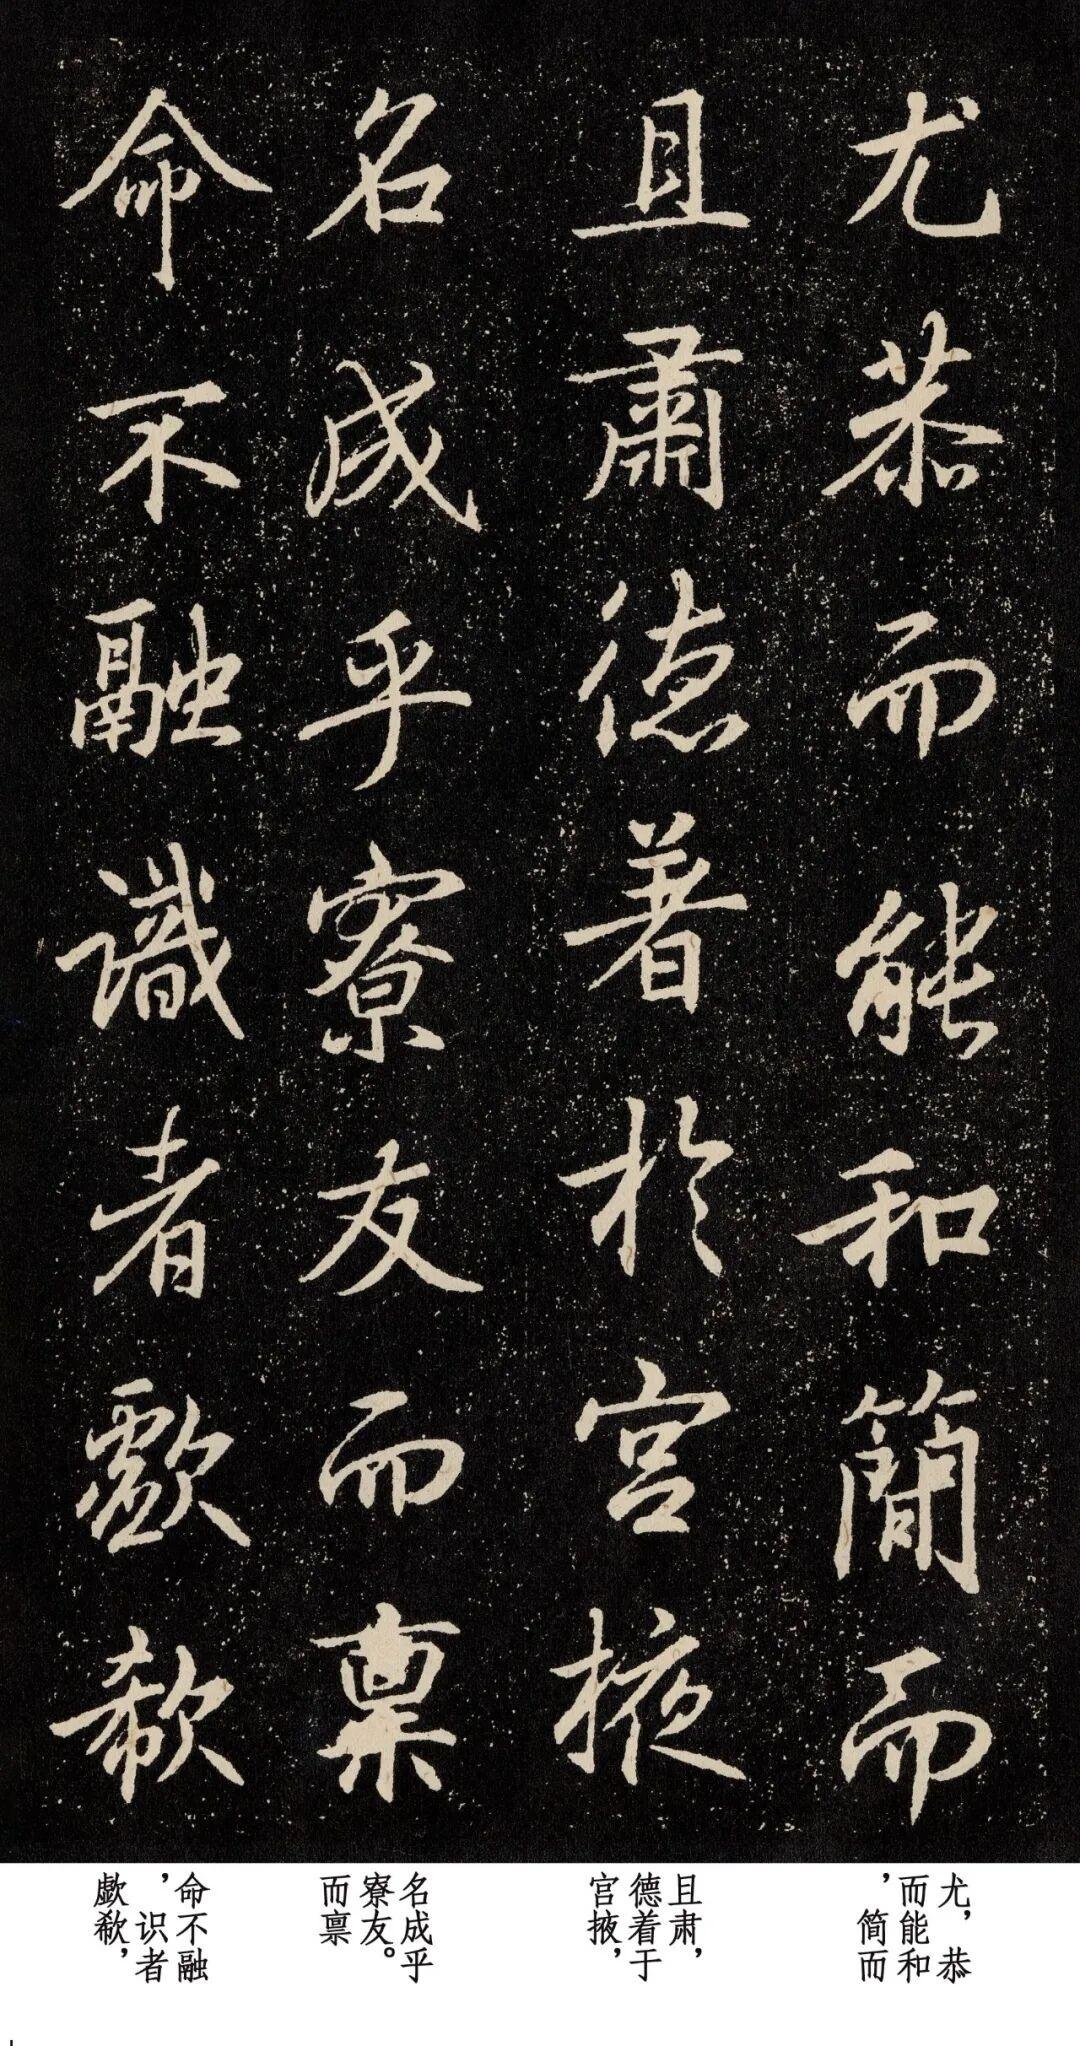 尤恭而能和簡而
且肅德著於宮掖
名成乎寮友而稟
命不融識者歔欷
尤，恭
而能和
，简而
且肃，
德着于
宫掖，
名成乎
寮友。
而禀
命不融
，识者
歔欷，